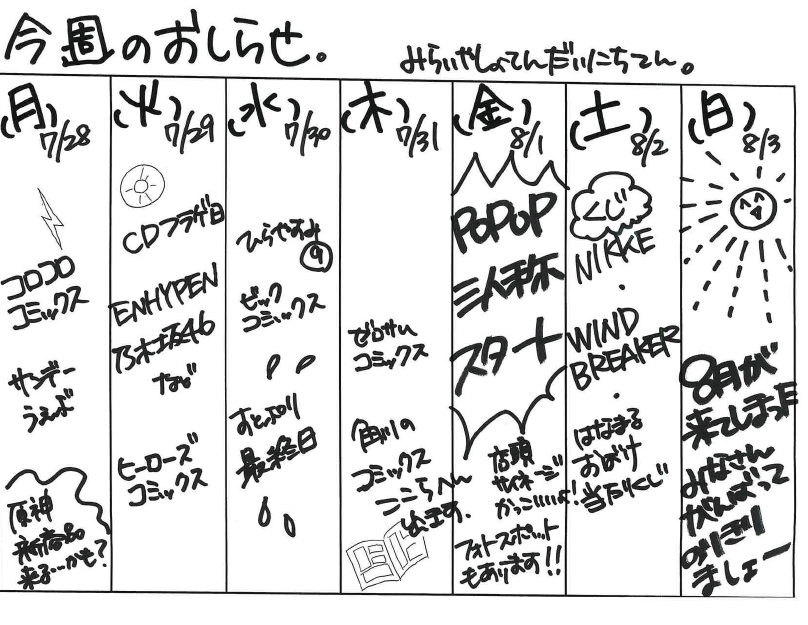 今週のおしらせ。
みらいやしょてんだいにちてん。
(月) 7/28
コロコロ
コミックス
サンデー
うぇぶ
原神
来る…かも?
(火) 7/29
CDフラゲ日
ENHYPEN
乃木坂46
など
ヒーローズ
コミックス
(水) 7/30
ひらやすみ
⑨
ビック
コミックス
すとぷり
最終日
(木) 7/31
ぜろさむ
コミックス
角川の
コミックス
ここらへん
出ます。
(金) 8/1
POPUP
三人称
スタート
店頭
サイネージ
かっこいいよ!
フォトスポット
もあります!!
(土) 8/2
くじ
NIKKE
・
WIND
BREAKER
・
はなまる
おばけ
当たりくじ
(日) 8/3
8月が
来てしまった
みなさん
がんばって
のりきり
ましょー